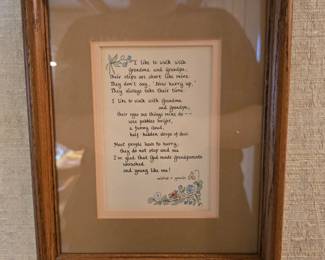 I like to walk with
Grandma and Grandpa,
Their steps are short like mine.
They don't say, "Now hurry up,"
They always take their time.
I like to walk with Grandma
and Grandpa,
their eyes see things mine do —
wee pebbles bright,
a funny cloud,
half hidden drops of dew.
Most people have to hurry,
they do not stop and see
I'm glad that God made Grandparents
unrushed
and young like me!